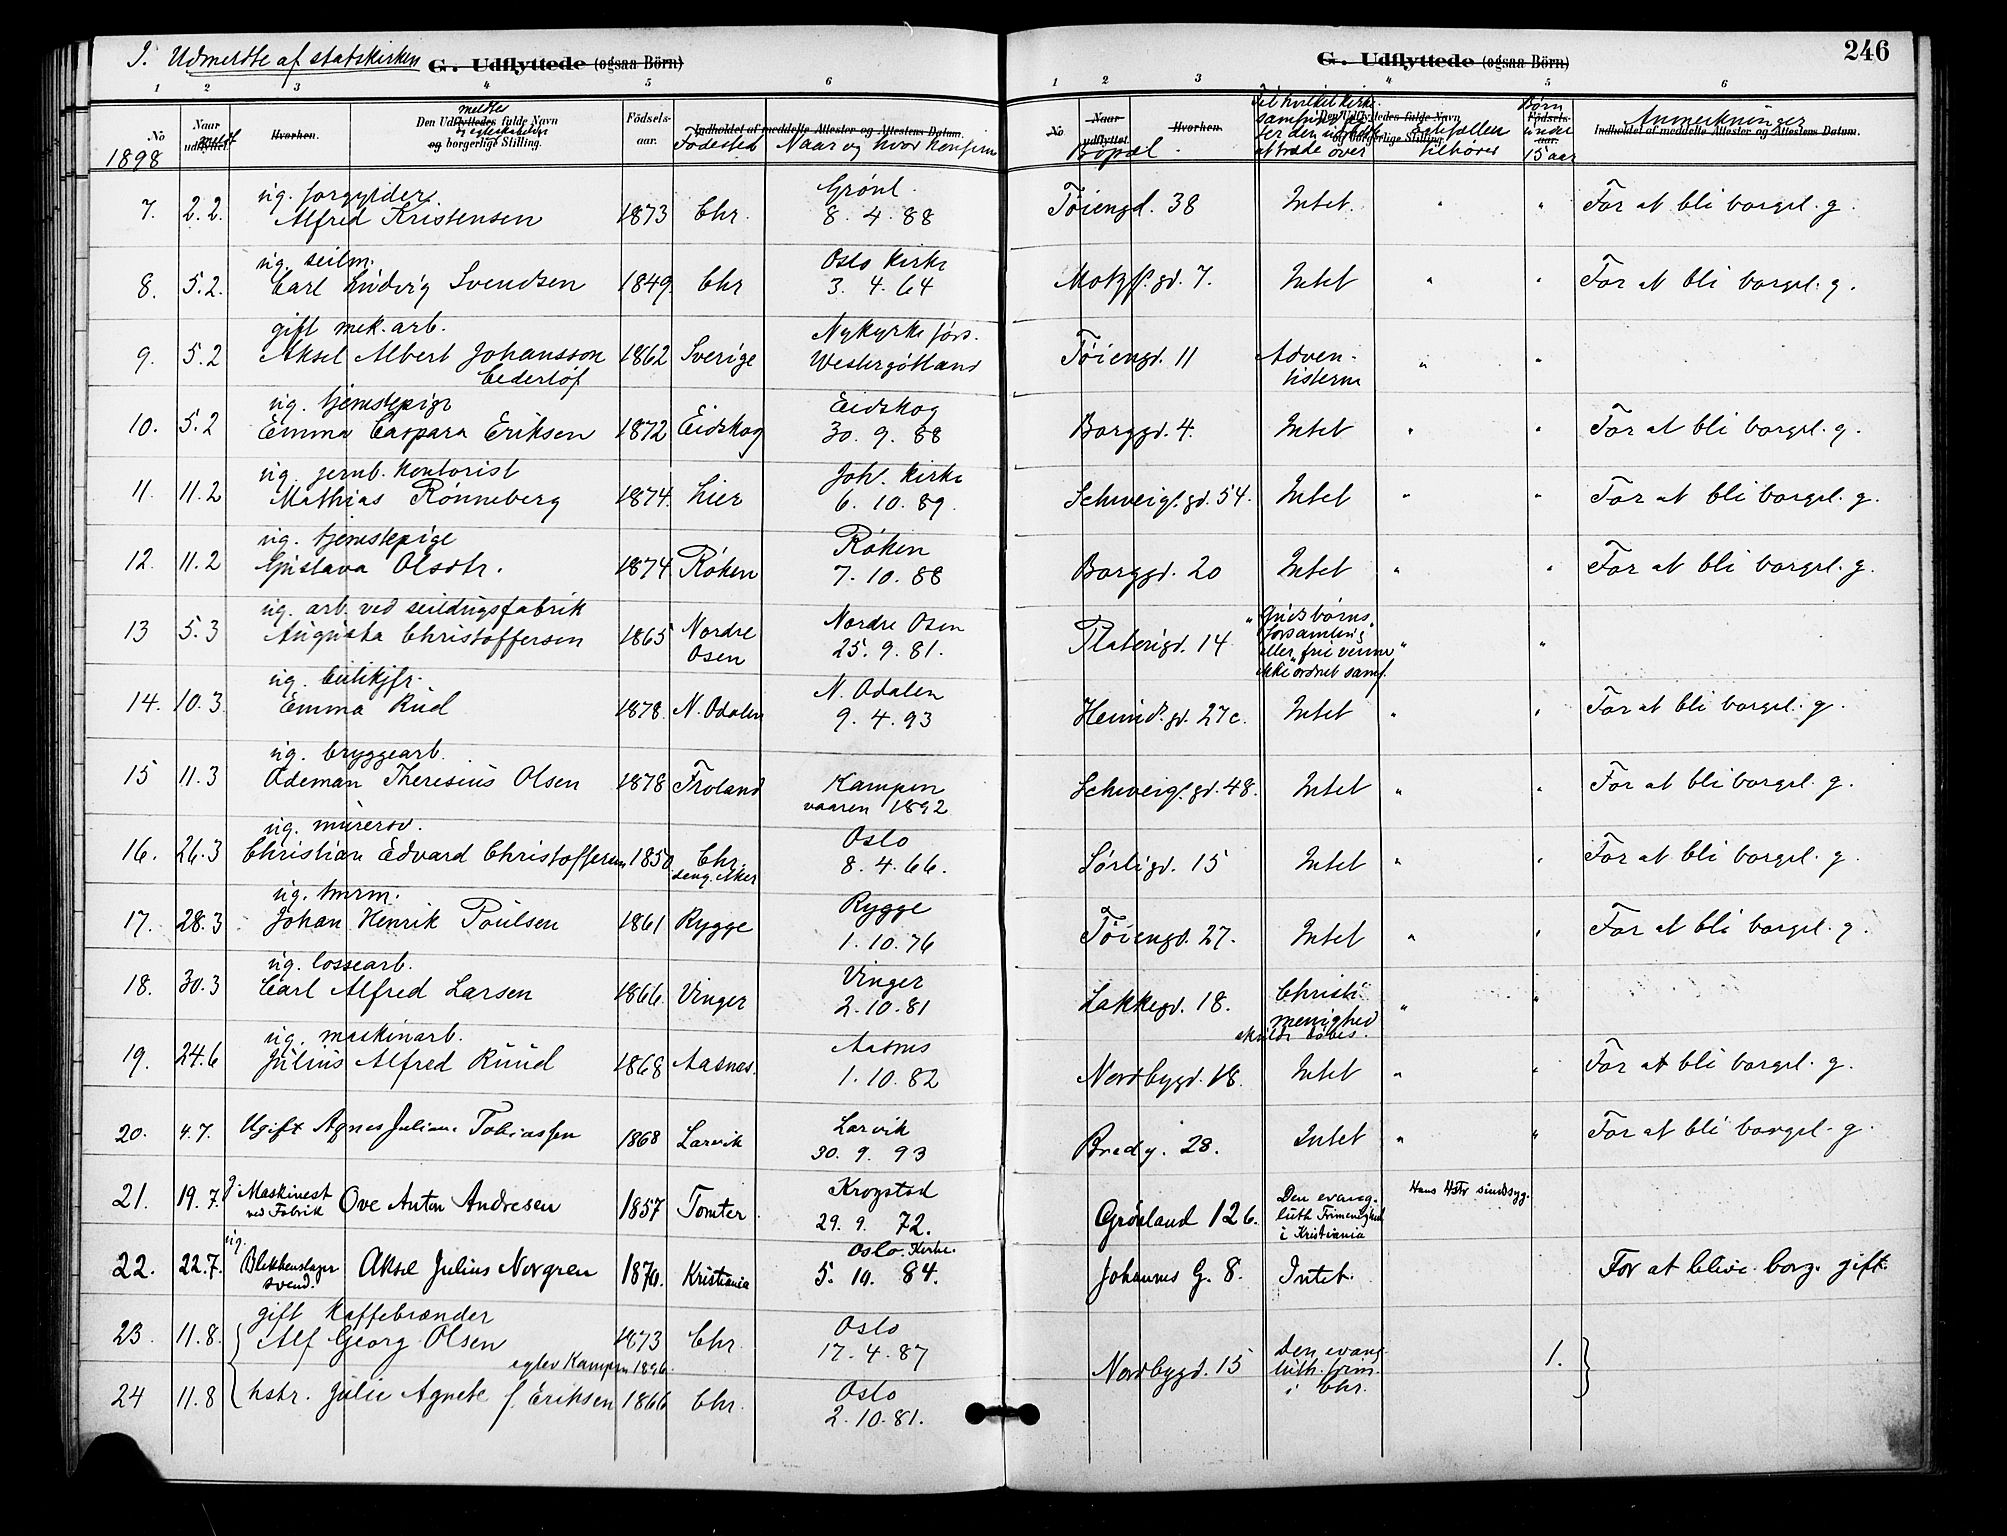 I. Udmeldte af statskirken G. Udflyttede (ogsaa Börn)
1 2 3 4 5 6
No Naar udflyttet meldt Hvorhen. Den Udflyttedes meldtes fulde Navn og borgerlige Stilling. Födsels-aar. Indholdet af meddelte Attester og Attestens Datum.
Födested Naar og hvor konfirm
1898
ug. forgylder.
7. 2.2. Alfred Kristensen 1873 Chr. Grønl. 8.4.88
ug. seilm.
8. 5.2. Carl Ludvig Svendsen 1849. Chr Oslo kirke 3.4.64
gift mek. arb.
9. 5.2 Aksel Albert Johansson Cederlöf 1862 Sverige Nykyrke förs. Westergötland
ug. tjenestepige
10. 5.2 Emma Caspara Eriksen 1872 Eidskog Eidskog 30.9.88
ug. jernb. kontorist
11. 11.2 Mathias Rønneberg 1874. Lier Joh. kirke 6.10.89.
ug. tjenestepige
12. 11.2 Gustava Olsdtr. 1874 Røken Røken 7.10.88
ug. arb. ved seildugsfabrik
13 5.3 Augusta Christoffersen 1865 Nordre Osen Nordre Osen 25.9.81.
ug. butikjfr.
14. 10.3 Emma Rud 1878. N. Odalen N. Odalen 9.4.93
ug. bryggearb.
15 11.3 Ademan Theresius Olsen 1878 Froland Kampen vaaren 1892
ug. murersv.
16. 26.3 Christian Edvard Christoffersen 1850 Chr. Oslo 8.4.66.
ug. tmrm.
17. 28.3 Johan Henrik Poulsen 1861 Rygge Rygge 1.10.76
ug. lossearb.
18. 30.3 Carl Alfred Larsen 1866. Vinger Vinger 2.10.81
ug. maskinarb.
19. 24.6 Julius Alfred Ruud 1868 Aasnes. Aasnes 1.10.82
20. 4.7. Ugift Agnes Juliane Tobiassen 1868 Larvik Larvik 30.9.93
21. 19.7. g. Maskinest ved Fabrik Ove Anton Andresen 1857 Tomter Krogstad 29.9.72.
22. 22.7. ug. Blikkenslager svend. Aksel Julius Norgren 1870. Kristiania Oslo Kirke. 5.10.84.
gift kaffebrænder
23. 11.8. Alf Georg Olsen 1873 Chr. Oslo 17.4.87
egtev Kampen 1896.
24 11.8 hstr. Julie Agnete f. Eriksen 1866 Chr. Oslo 2.10.81.
G. Udflyttede (ogsaa Börn) 246
1 2 3 4 5 6
No Naar udflyttet Hvorhen. Den Udflyttedes fulde Navn og borgerlige Stilling. Födsels-aar. Indholdet af meddelte Attester og Attestens Datum.
Bopæl. Til hvilket kirkesamfund at træde over Egtefællen tilhører Børn under 15 aar Anmerkninger
Tøiengd. 38 Intet. " " For at bli borgerl. g.
Motzf. gd. 7. Intet " " For at bli borgerl. g.
Tøiengd. 11 Adventisterne " "
Borggd. 4. Intet " " For at bli borgerl. g.
Schweig. gd. 54. Intet " " For at bli borgerl. g.
Borggd. 20 Intet " " For at bli borgerl. g.
Plateugd. 14 "Guds børns" forsamling eller "frie venner" ikke ordnet samf. " "
Heimd. gd. 27c. Intet " " For at bli borgerl. g.
Schweig. gd. 48. Intet " " For at bli borgerl. g.
Sørligd. 15 Intet " " For at bli borgerl. g.
Tøiengd. 27. Intet " " For at bli borgerl. g.
Lakkegd. 18. Christi menighed " "
Nordbygd. 18. Intet " " For at bli borgerl. g.
Bredg. 28. Intet " " For at bli borgerl. g.
Grønland 126. Den evang. luth Frimenighed i Kristiania Hans Hstr sindssyg.
Johannes G. 8. Intet. For at blive borg. gift.
Nordbygd. 15 Den evang. luth. frim. i Chr. 1.